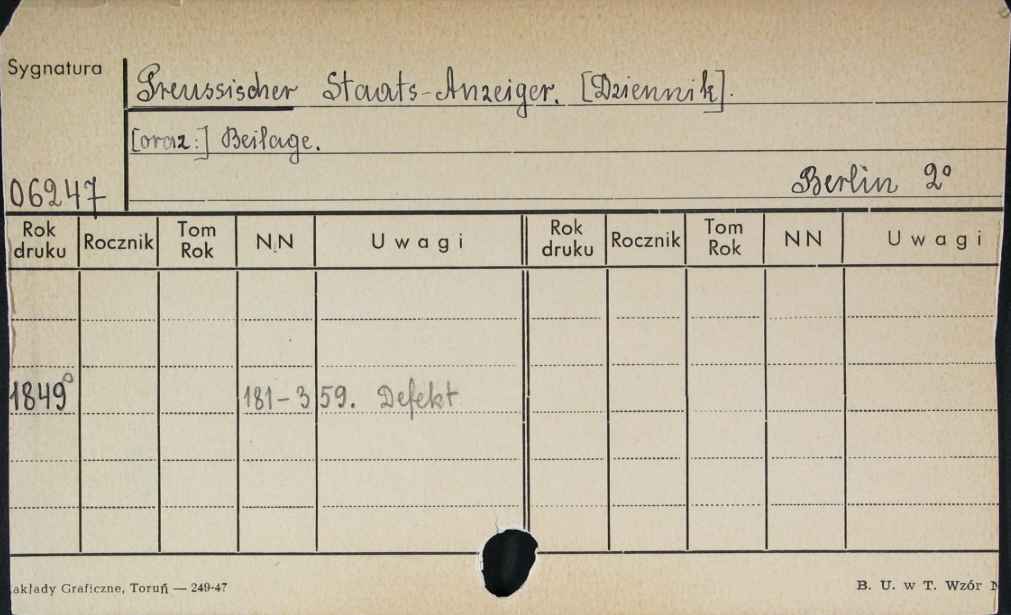 Sygnatura
Preussischer Staats-Anzeiger. [Dziennik].
[oraz:] Beilage.
06247
Berlin 2°
Rok druku Rocznik Tom Rok NN Uwagi Rok druku Rocznik Tom Rok NN Uwagi
1849° 181-359. Defekt
akłady Graficzne, Toruń — 249-47
B. U. w T. Wzór N